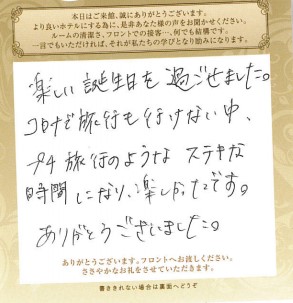 本日はご来館、誠にありがとうございます。
より良いホテルにする為に、是非あなた様の声をお聞かせください。
ルームの清潔さ、フロントでの接客…、何でも結構です。
一言でもいただければ、それが私たちの学びとなり励みになります。
楽しい誕生日を過ごせました。
コロナで旅行も行けない中、
プチ旅行のようなステキな
時間になり、楽しかったです。
ありがとうございました。
ありがとうございます。フロントへお渡しください。
ささやかなお礼をさせていただきます。
書ききれない場合は裏面へどうぞ